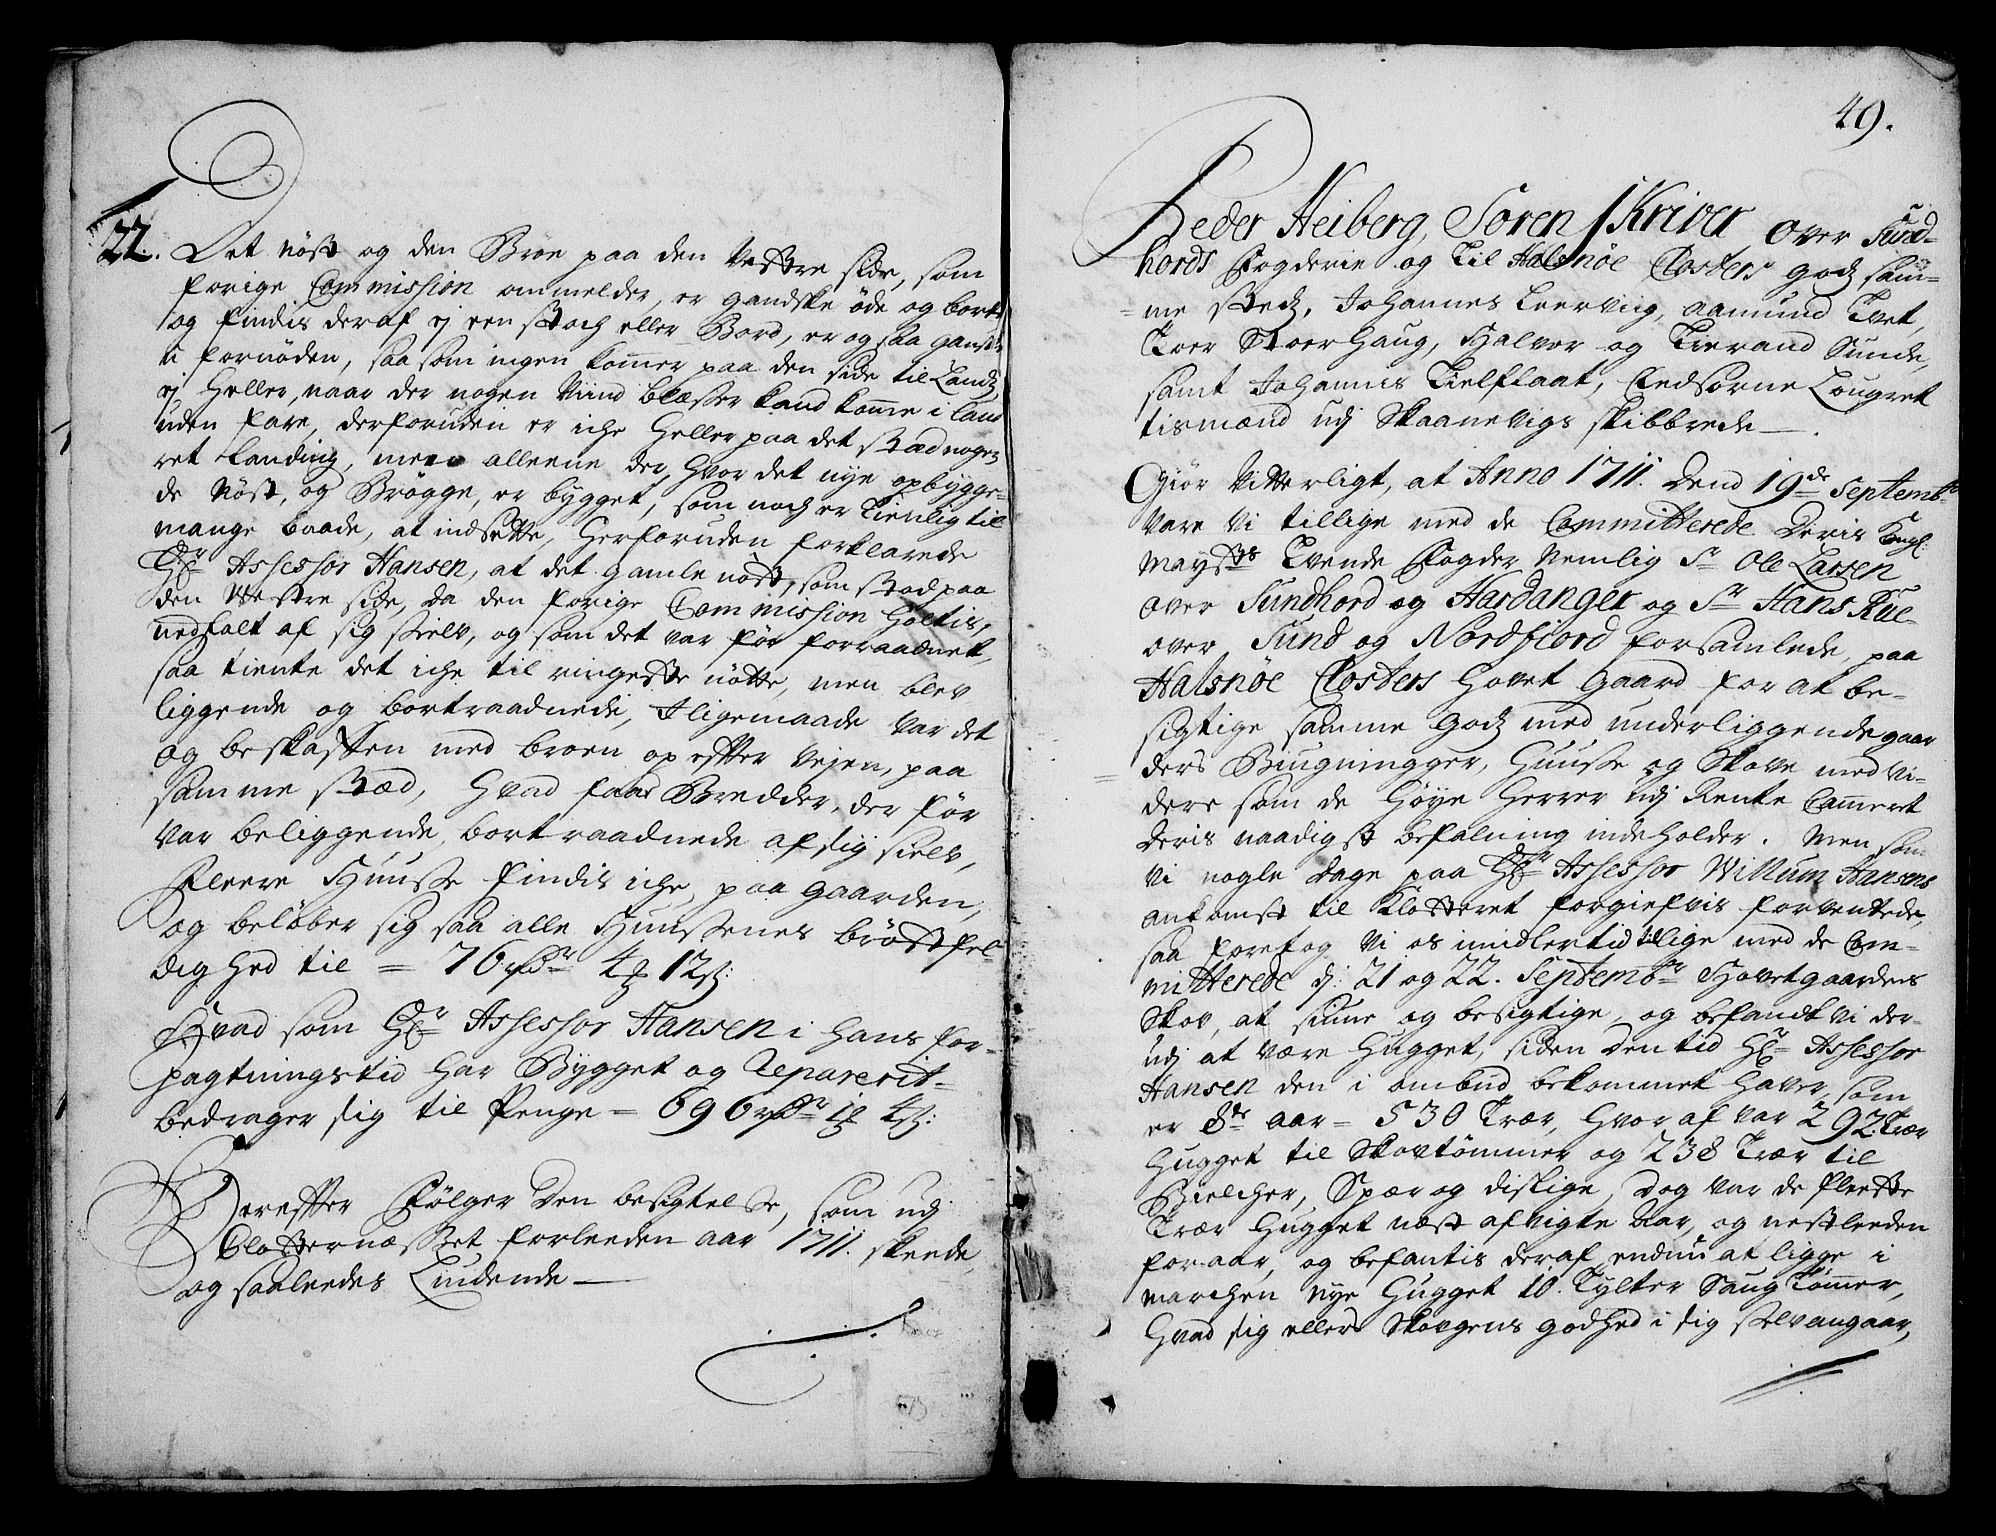 22. Det nøst og den Broe paa den Vestre side, som
forige Commission ommelder, er gandske øde og bort
og findis deraf ej een stoch eller Bord, er og saa gansk
u fornøden, saa som ingen kommer paa den side til Landz
ej heller, naar der nogen Viind blæsser kand komme i land
uden fare, derforuden er iche heller paa det stæd nogen
ret Landing, men alleene der, hvor det nye opbygge-
de Nøst, og Brøgge, er bygget, som noch er tienlig til
mange baade, at indsette, herforuden forklarede
Hr Assessor Hansen, at det gamle nøst, som stod paa
den Westre side, da den forige Commission holtis,
nedfalt af sig sielv, og som det var før forraadnet,
saa tiente det iche til ringeste nøtte, men blev
liggende og bortraadnede, Iligemaade var det
og beskaffen med broen op efter Vejen, paa
samme stæd, hvad faae Bredder, der før
var beliggende, bortraadnede af sig sielv,
Fleere Huusse findis iche, paa gaarden,
og beløber sig saa alle Huussenes brøstfel-
dighed til = 76 rdr 4 12
Hvad som Hr Assessor Hansen i hans for-
pagtningstid har Bygget og Reparerit-
bedrager sig til Penge = 696 rdr 1 4
Derefter Følger den besigtelse, som udj
Closternæsset forleeden aar 1711. skeede,
og saaleedes Liudende —
49.
Peder Heiberg, Soren Skriver over Sund-
hords Fogderie og til Halsnøe Closters godz sam-
me stedz, Johannes Leervig, Aamund Tvet,
Toer Stoerhaug, Halvor og Tierand Sunde,
samt Johannis Tielflaat, Eedsorne Lougret
tismænd udj Skaanevigs skibbrede —
Giør Vitterligt, at Anno 1711. Dend 19de Septembr
vare Vi tillige med de Committerede Deris Kongl:
Maysts Tvende Fogder Nemlig Sr Ole Larsen
over Sundhord og Hardanger og Sr Hans Tue-
over Sund og Nordfiord forsamlede, paa
Halsnøe Closters Hovet Gaard for at be-
sigtige samme Godz med underliggende gaar
ders Biugningger, Huusse og Skove med Vi-
dere som de Høye Herrer udj Rente Cammeret
Deris naadigst befalning inde holder. Men som
Vi nogle Dage paa Hr Assessor Willum Hansens
ankomst til Klosteret forgiefvis forventede,
saa foretog Vi os imidlertid tillige med de Com-
mitterede d: 21 og 22. Septembr Hovetgaardens
Skov, at siune og besigtige, og befandt Vi der-
udj at være Hugget, siden den tid Hr Assessor
Hansen den i ombud bekommet haver, som
er 8te aar = 530 Træer, hvor af var 292 Træer
Hugget til Skovtømmer og 238 Træer til
Bielcher, Spær og dislige, Dog var de fleeste
Træer Hugget næst afvigte Aar, og nestleeden
foraar, og befantis deraf endnu at ligge i
marchen nye Hugget 10. Tylter Saug Tømmer,
Hvad sig ellers Skovgens godhed i sig selv angaar,